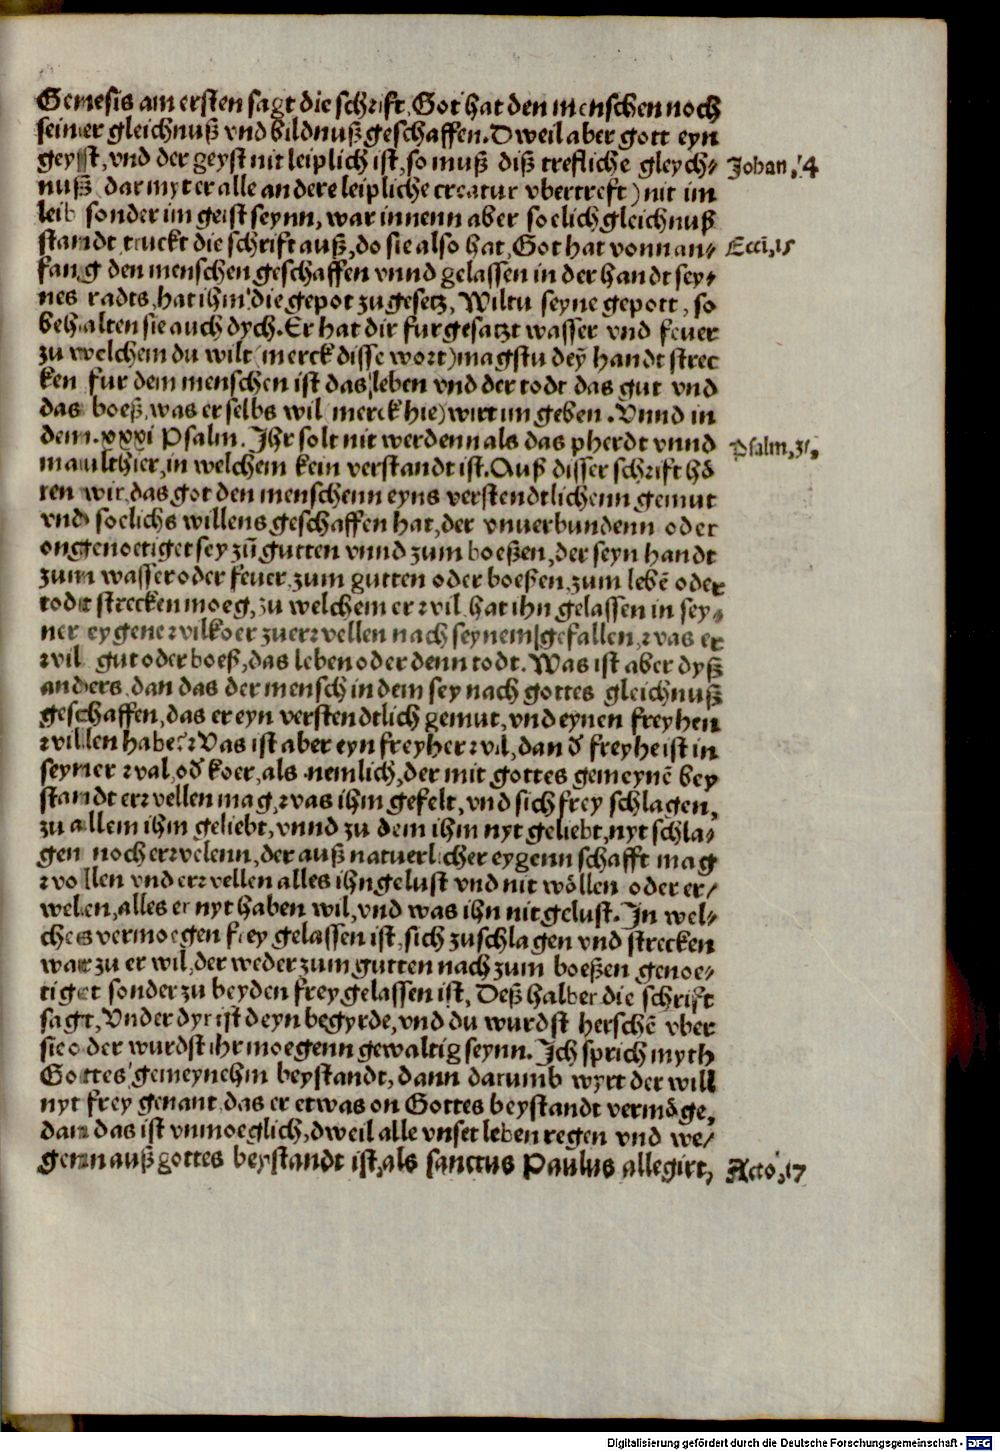 Genesis am ersten sagt die schrift, Got hat den menschen noch
seiner gleichnuß vnd bildnuß geschaffen. Dweil aber gott eyn
geyst, vnd der geyst nit leiplich ist, so muß diß trefliche gleych-
Johan, 4
nuß (dar myt er alle andere leipliche creatur vbertreft) nit im
leib sonder im geist seynn, war innenn aber soelich gleichnuß
standt truckt die schrift auß, do sie also hat, Got hat vonn an-
Eccl, 15
fang den menschen geschaffen vnnd gelassen in der handt sey-
nes radts, hat ihm die gepot zu gesetz, Wiltu seyne gepott, so
behalten sie auch dych. Er hat dir fur gesatzt wasser vnd feuer
zu welchem du wilt (merck disse wort) magstu dey handt strec
ken fur dem menschen ist das leben vnd der todt das gut vnd
das boeß, was er selbs wil (merck hie) wirt im geben. Vnnd in
dem .xxxi Psalm. Ihr solt nit werdenn als das pherdt vnnd
Psalm, 31,
maulthier, in welchem kein verstandt ist. Auß disser schrift hö
ren wir, das got den menschenn eyns verstendtlichenn gemut
vnd soelichs willens geschaffen hat, der vnuerbundenn oder
ongenoetiget sey zu gutten vnnd zum boeßen, der seyn handt
zum wasser oder feuer, zum gutten oder boeßen, zum lebē oder
todt strecken moeg, zu welchem er wil, hat ihn gelassen in sey-
ner eygene wilkoer zuerwellen nach seynem gefallen, was er
wil gut oder boeß, das leben oder denn todt. Was ist aber dyß
anders, dan das der mensch in dem sey nach gottes gleichnuß
geschaffen, das er eyn verstendtlich gemut, vnd eynen freyhen
willen habe? Was ist aber eyn freyher wil, dan d̄ freyhe ist in
seyner wal, od̄ koer, als nemlich, der mit gottes gemeynē bey
standt erwellen mag, was ihm gefelt, vnd sich frey schlagen,
zu allem ihm geliebt, vnnd zu dem ihm nyt geliebt, nyt schla-
gen noch erwelenn, der auß natuerlicher eygennschafft mag
wollen vnd erwellen alles ihn gelust vnd nit wöllen oder er-
welen, alles er nyt haben wil, vnd was ihn nit gelust. In wel-
ches vermoegen frey gelassen ist, sich zuschlagen vnd strecken
warzu er wil, der weder zum gutten nach zum boeßen genoe-
tiget sonder zu beyden frey gelassen ist, Deß halber die schrift
sagt, Vnder dyr ist deyn begyrde, vnd du wurdst herschē vber
sie oder wurdst ihr moegenn gewaltig seynn. Ich sprich myth
Gottes gemeynehm beystandt, dann darumb wyrt der will
nyt frey genant das er etwas on Gottes beystandt vermöge,
dan das ist vnmoeglich, dweil alle vnset leben regen vnd we-
genn auß gottes beystandt ist, als sanctus Paulus allegirt,
Acto, 17
Digitalisierung gefördert durch die Deutsche Forschungsgemeinschaft - DFG